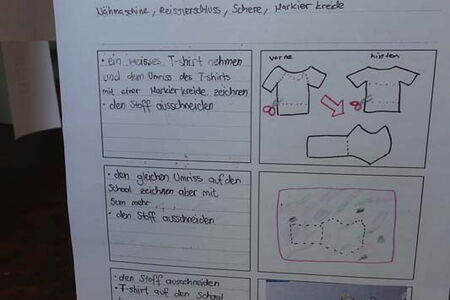 Nähmaschine, Reissverschluss, Schere, Markierkreide
• ein weisses T-shirt nehmen
und dem Umriss des T-shirts
mit einer Markierkreide zeichnen
• den Stoff ausschneiden
vorne
hinten
• den gleichen Umriss auf den
School zeichnen aber mit
5cm mehr
• den Stoff ausschneiden
• den Stoff ausschneiden
• T-shirt auf den School